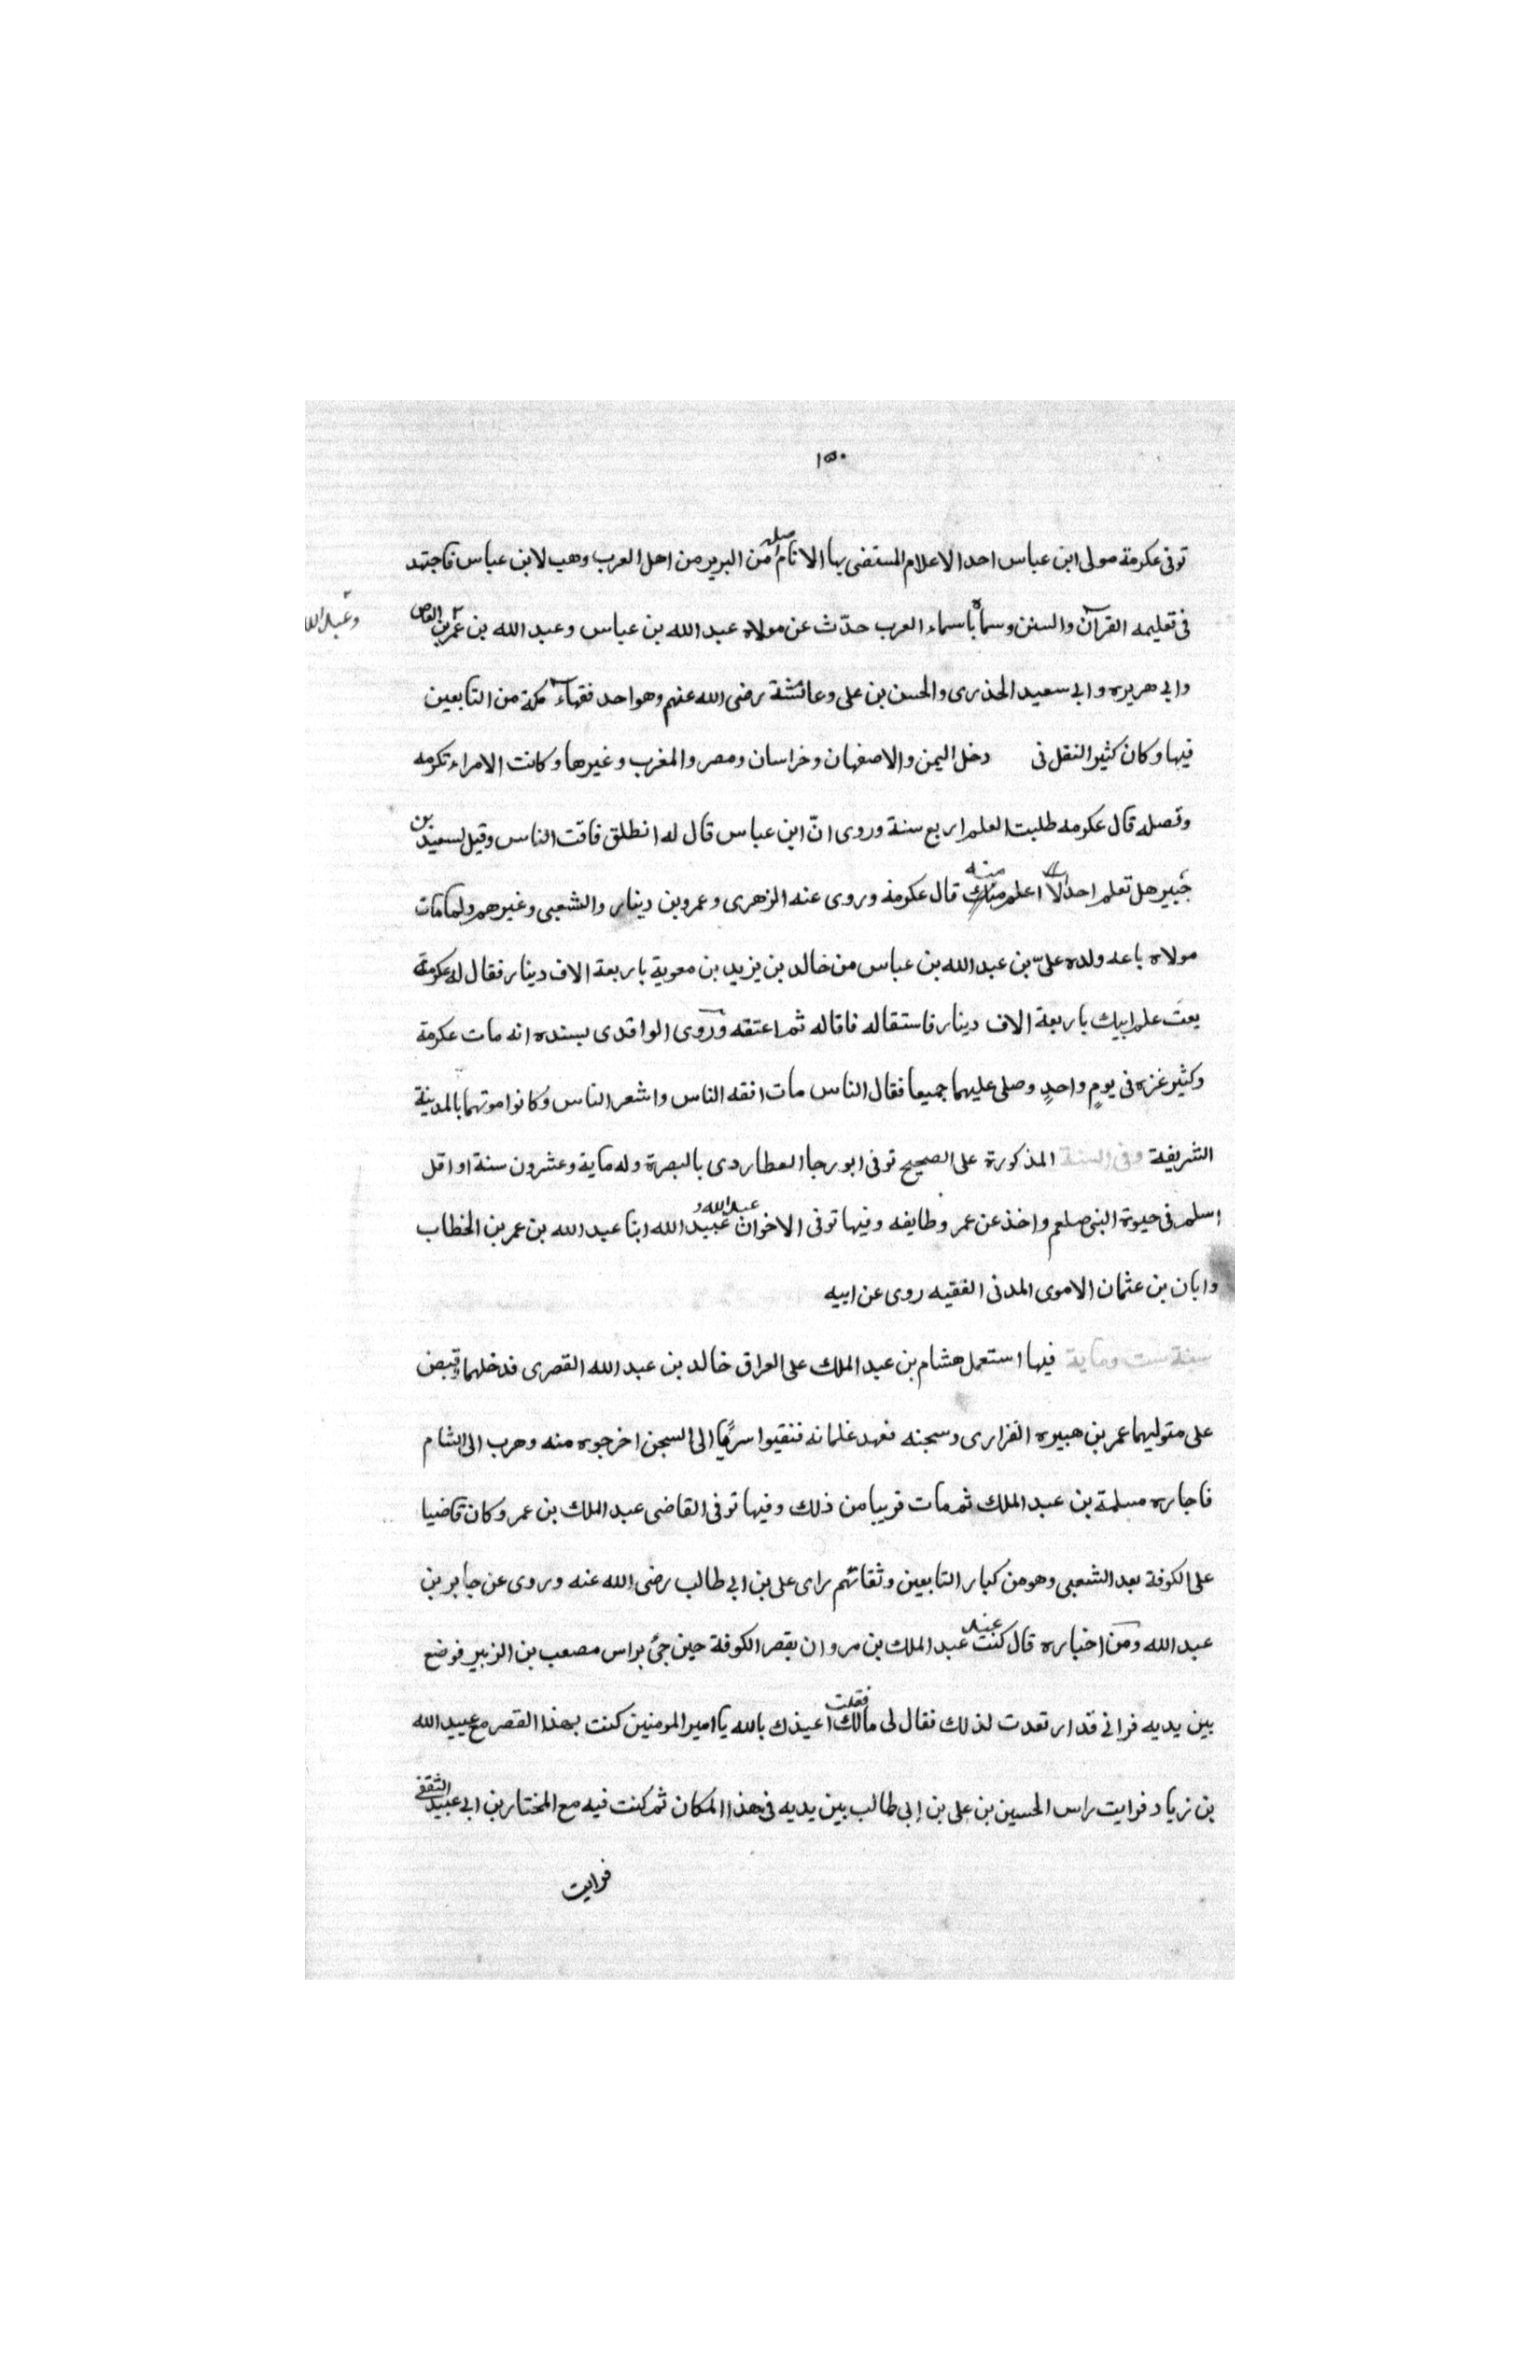 ١٥٠
توفى عكرمة مولى ابن عباس احد الاعلام المستضى بها الانام اصله من البربر من اهل العرب وهب لابن عباس فاجتهد
فى تعليمه القرآن والسنن وسماه باسماء العرب حدّث عن مولاه عبد الله بن عباس وعبد الله بن عمر بن العاص
وعبد الله
وابى هريره وابى سعيد الخذرى والحسن بن على وعائشة رضى الله عنهم وهو احد فقهاء مكة من التابعين
فيها وكان كثير النقل فى دخل اليمن والاصفهان وخراسان ومصر والمغرب وغيرها وكانت الامراء تكرمه
وتصله قال عكرمه طلبت العلم اربع سنة وروى انّ ابن عباس قال له انطلق فاقت الناس وقيل لسعيد بن
جبير هل تعلم احدا اعلم منك قال عكرمة وروى عنه الزهرى وعمرو بن دينار والشعبى وغيرهم ولما مات
مولاه باعه ولده علىّ بن عبد الله بن عباس من خالد بن يزيد بن معوية باربعة الاف دينار فقال له عكرمة
بعت علم ابيك باربعة الاف دينار فاستقاله فاقاله ثم اعتقه وروى الواقدى بسنده انه مات عكرمة
وكثير غزه فى يومٍ واحدٍ وصلى عليهما جميعا فقال الناس مات افقه الناس واشعر الناس وكانوا موتهما بالمدينة
الشريفة وفى السنة المذكورة على الصحيح توفى ابو رجا العطاردى بالبصرة وله ماية وعشرون سنة او اقل
اسلم فى حيوة النبى صلعم واخذ عن عمر وطايفه وفيها توفى الاخوان عبد الله و عبيد الله ابنا عبد الله بن عمر بن الخطاب
وابان بن عثمان الاموى المدنى الفقيه روى عن ابيه
سنة ست وماية فيها استعمل هشام بن عبد الملك على العراق خالد بن عبد الله القصرى فدخلهما وقبض
على متوليهما عمر بن هبيره الفزارى وسجنه فعهد غلمانه فنقبوا سربًا الى السجن اخرجوه منه وهرب الى الشام
فاجاره مسلمة بن عبد الملك ثم مات قريبا من ذلك وفيها توفى القاضى عبد الملك بن عمر وكان قاضيا
على الكوفة بعد الشعبى وهو من كبار التابعين وثقاتهم راى على بن ابى طالب رضى الله عنه وروى عن جابر بن
عبد الله ومن اخباره قال كنت عند عبد الملك بن مروان بقصر الكوفة حين جئ براس مصعب بن الزبير فوضع
بين يديه فرانى قد ارتعدت لذلك فقال لى مالك فقلت اعيذك بالله يا امير المومنين كنت بهذا القصر مع عبيد الله
بن زياد فرايت راس الحسين بن على بن ابى طالب بين يديه فى هذا المكان ثم كنت فيه مع المختار بن ابى عبيد الثقفى
فرايت